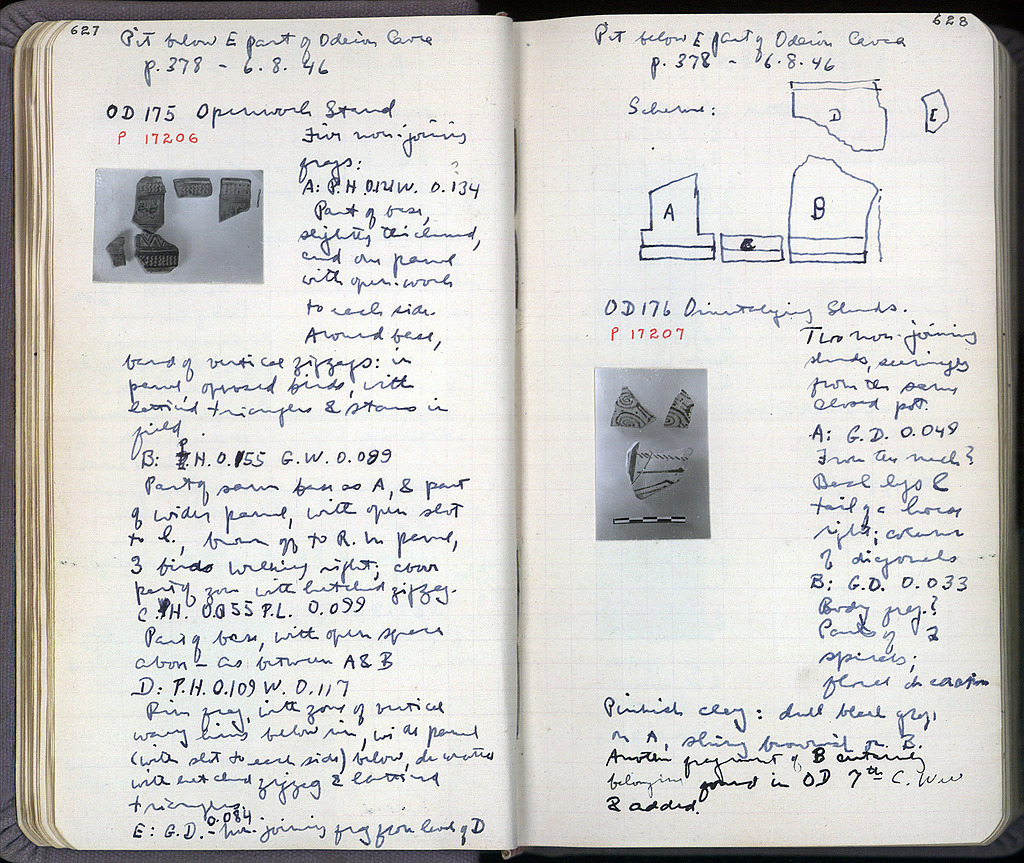 627
Pit below E part of Odeion Cavea
p. 378 - 6.8.46
OD 175 Openwork Stand
P 17206
Five non-joining
frags:
?
A: P.H. 0.121 W. 0.134
Part of base,
slightly thickened,
and one panel
with open-work
to each side.
Around base,
band of vertical zigzags: in
panel, opposed birds, with
latticed triangles & stars in
field.
B: P.H. 0.155 G.W. 0.099
Part of same base as A, & part
of wider panel, with open slot
to L, broken off to R. In panel,
3 birds walking right; above
part of zone with hatched zigzag.
C: P.H. 0.055 P.L. 0.099
Part of base, with open space
above - as between A & B
D: P.H. 0.109 W. 0.117
Rim frag, with zone of vertical
wavy lines below rim, wide panel
(with slot to each side) below, decorated
with hatched zigzag & latticed
triangles.
E: G.D. 0.084 - non-joining frag from level of D
628
Pit below E part of Odeion Cavea
p. 378 - 6.8.46
Scheme:
D
E
A
C
B
OD 176 Orientalizing Sherds.
P 17207
Two non-joining
sherds, seemingly
from the same
closed pot.
A: G.D. 0.049
From the neck?
Back legs &
tail of a horse
right; column
of diagonals
B: G.D. 0.033
Body frag.?
Parts of 2
spirals;
floral decoration
Pinkish clay: dull black glaze
on A, shiny brownish on B.
Another fragment of B certainly
belonging found in OD 7th C. Well
& added.